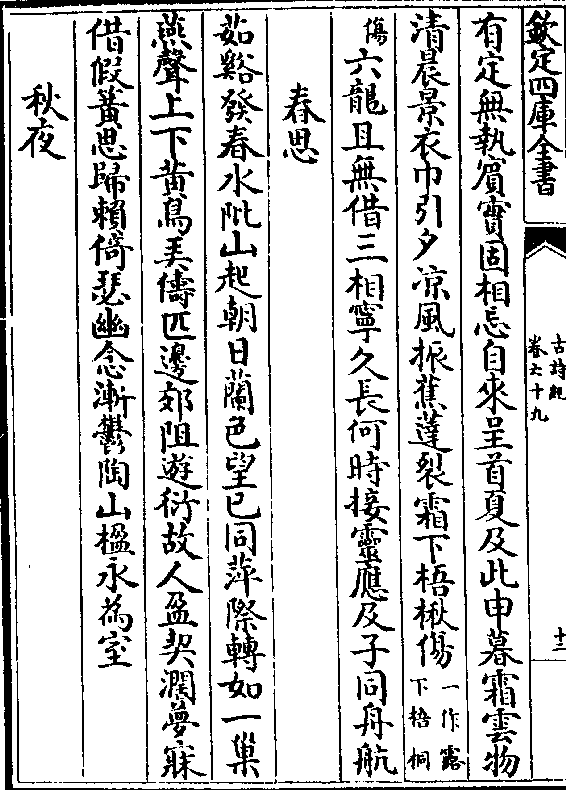 欽定四庫全書
古詩紀
卷六十九
十三
有定無執賓實固相忘自來呈首夏及此申暮霜雲物
清晨景衣巾引夕凉風振蕉蓬裂霜下梧楸傷一作露下梧桐
傷六龍且無借三相寧久長何時接靈應及子同舟航
春思
茹谿發春水阰山起朝日蘭色望已同萍際轉如一巢
燕聲上下黄鳥弄儔匹邊郊阻遊衍故人盈契濶夢寐
借假簧思歸賴倚瑟幽念漸鬱陶山楹永為室
秋夜